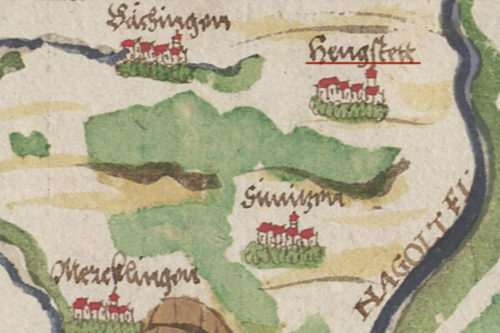 Gächingen
Hengstett
Simitzen
Mercklingen
NAGOLT FL: